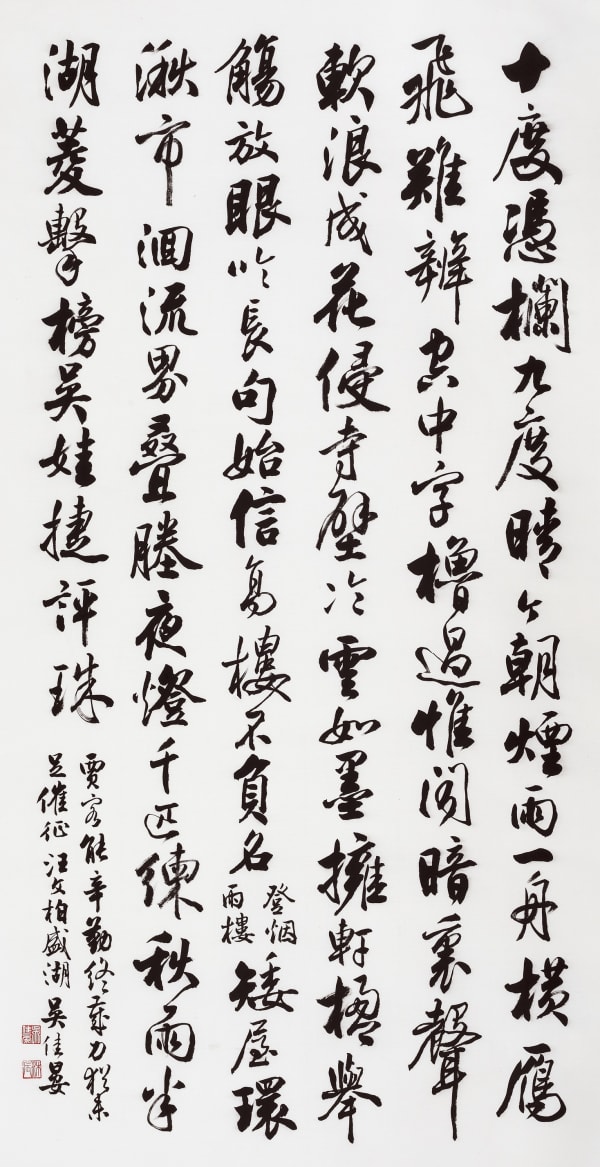 十度憑欄九度晴今朝煙雨一舟橫雁
飛難辨空中字櫓過惟聞暗裏聲
軟浪成花侵寺壁冷雲如墨擁軒楹舉
觴放眼吟長句始信高樓不負名登烟雨樓矮屋環
湫市洄流界疊塍夜燈千匹練秋雨半
湖菱擊榜吳娃捷評珠
賈客能辛勤終歲力猶未
足催征汪文柏盛湖 吳佳晏